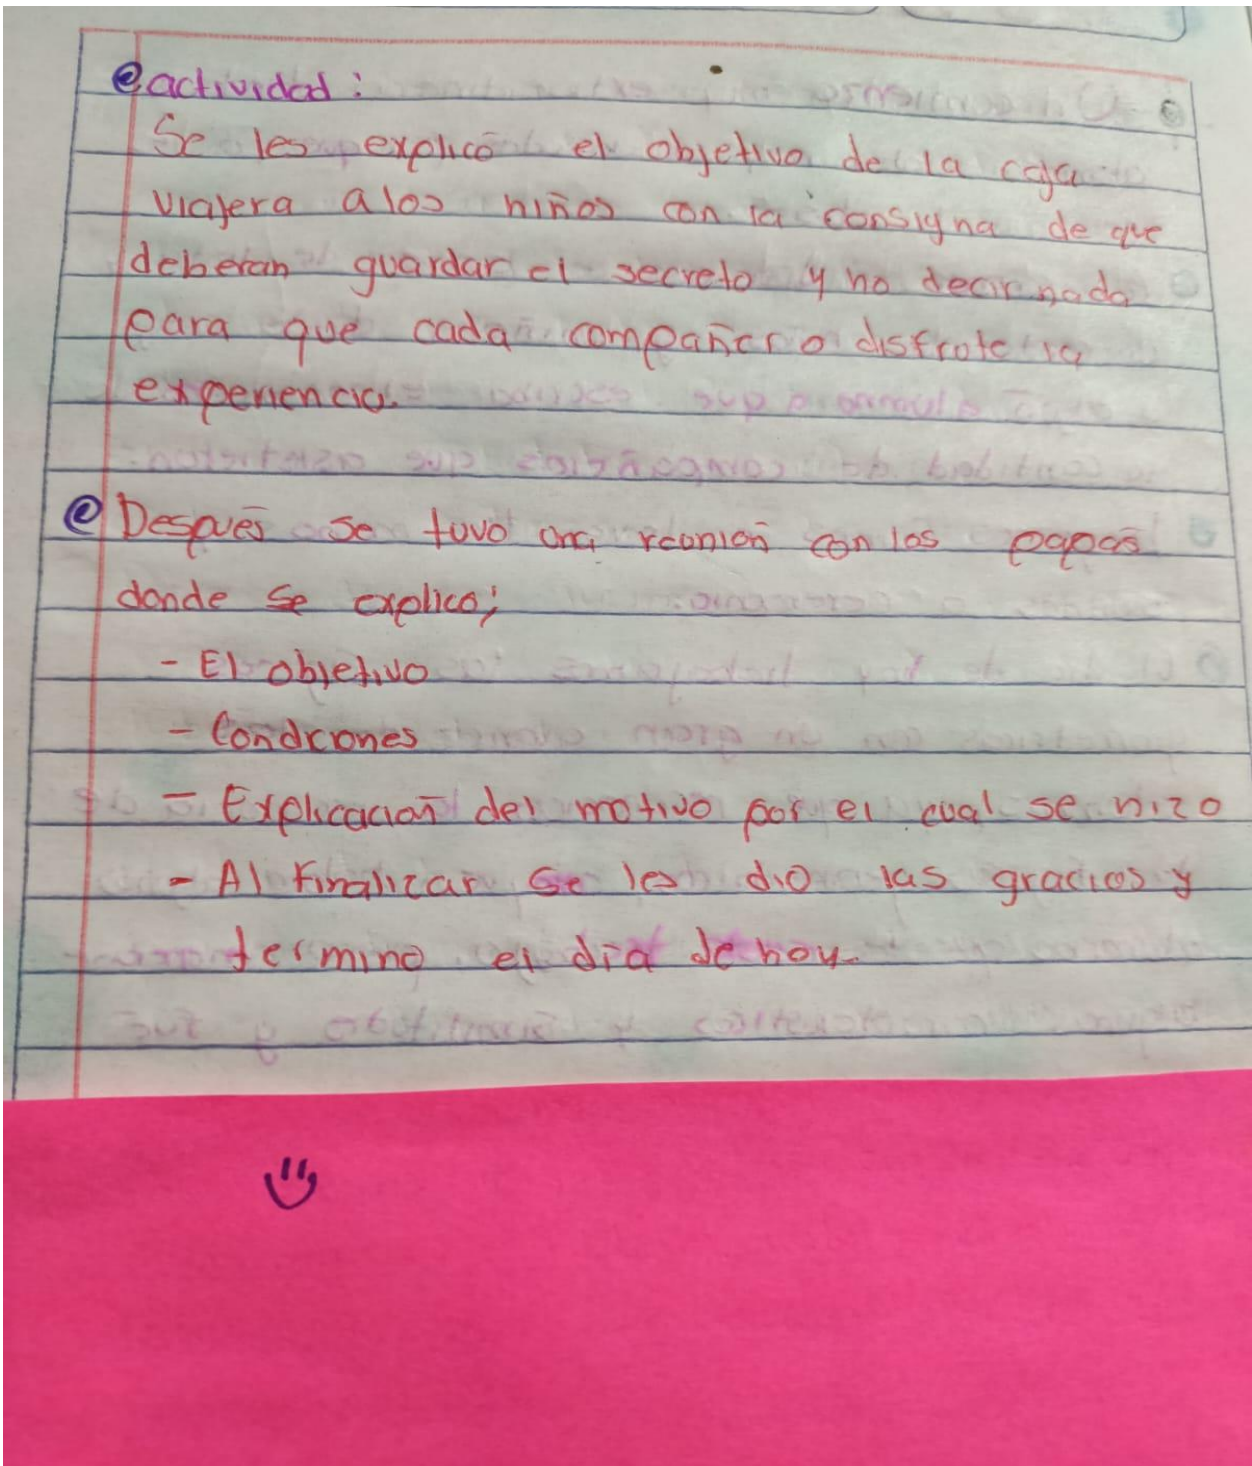 actividad:
Se les explicó el objetivo de la caja
viajera a los niños con la consigna de que
deberan guardar el secreto y no decir nada
para que cada compañero disfrute la
experiencia.
Después se tuvo una reunión con los papás
donde se explico;
- El objetivo
- Condiciones
- Explicación del motivo por el cual se hizo
- Al Finalizar se les dio las gracias y
termino el día de hoy.